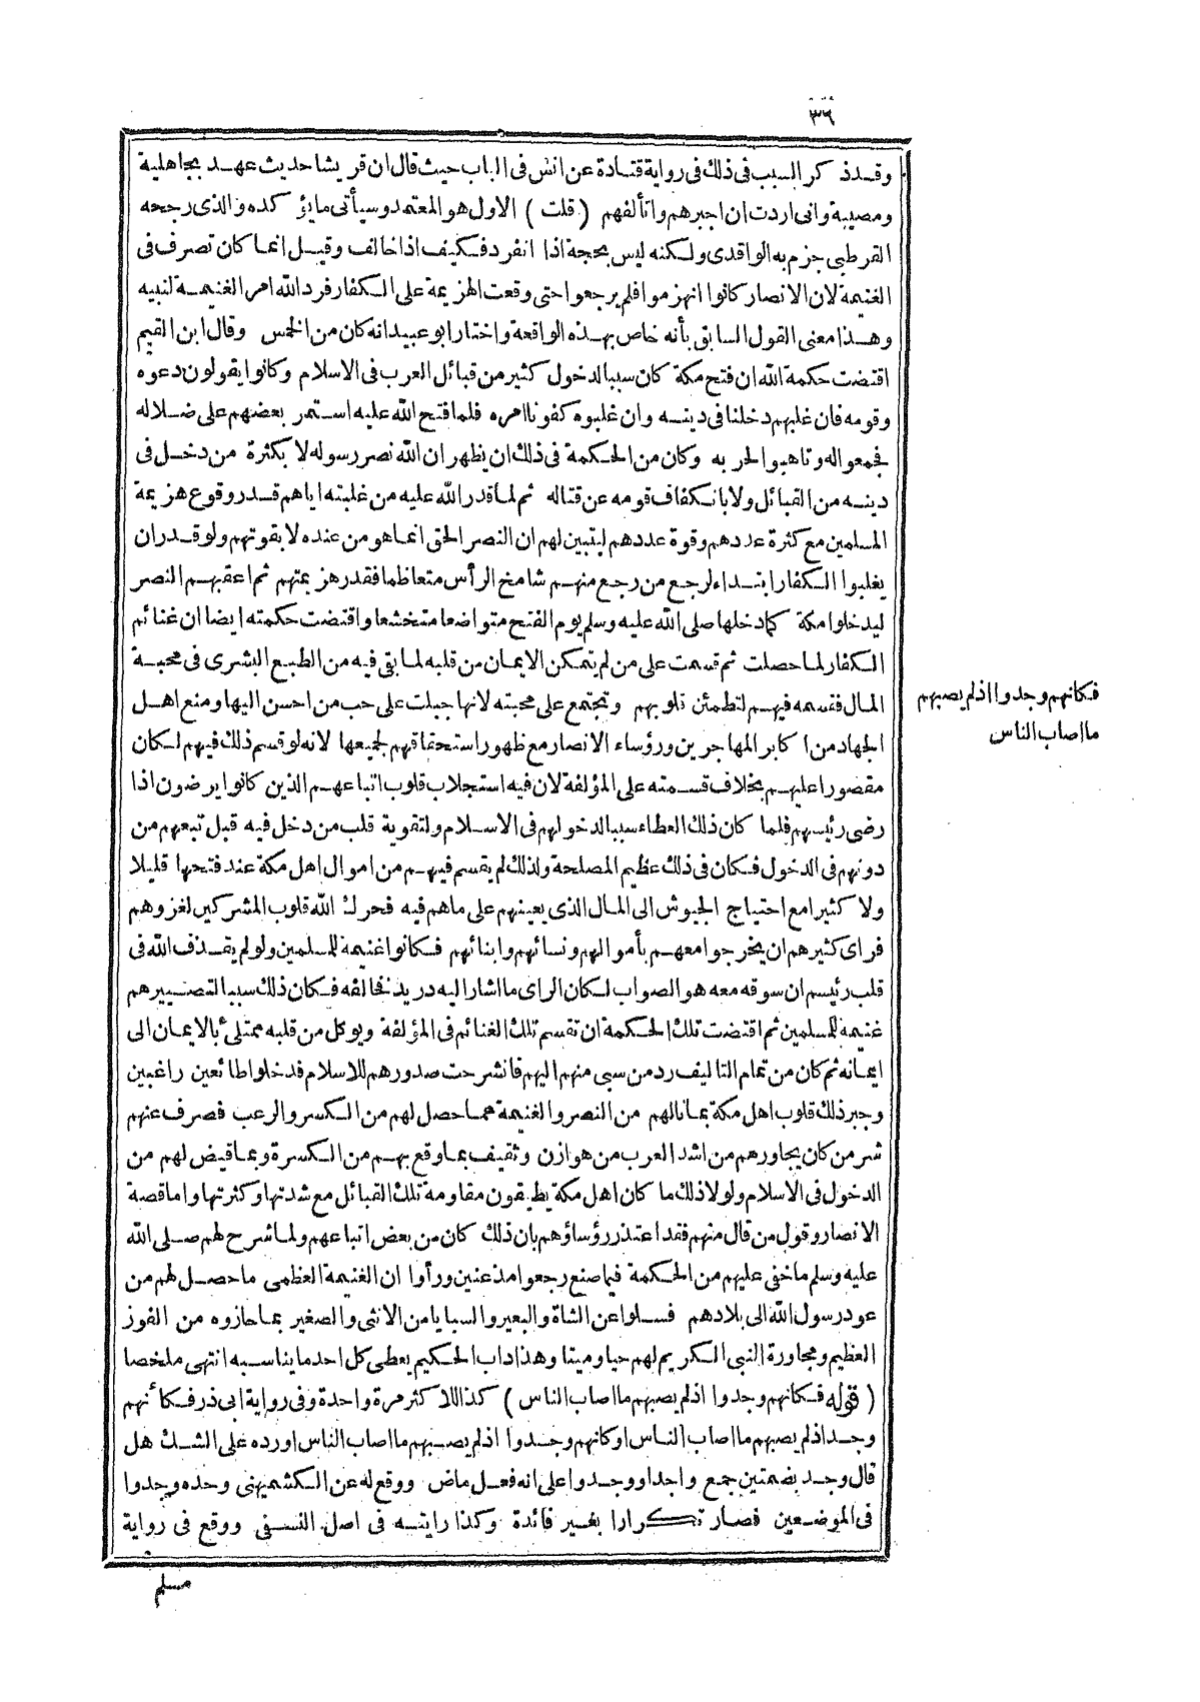 ٣٦
وقد ذكر السبب فى ذلك فى رواية قتادة عن انس فى الباب حيث قال ان قريشا حديث عهد بجاهلية
ومصيبة وانى اردت ان اجبرهم واتألفهم (قلت) الاول هو المعتمد وسيأتى ما يؤكده والذى رجحه
القرطبى جزم به الواقدى ولكنه ليس بحجة اذا انفرد فكيف اذا خالف وقيل انما كان تصرف فى
الغنيمة لان الانصار كانوا انهزموا فلم يرجعوا حتى وقعت الهزيمة على الكفار فرد الله امر الغنيمة لنبيه
وهذا معنى القول السابق بأنه خاص بهذه الواقعة واختار ابو عبيد انه كان من الخمس وقال ابن القيم
اقتضت حكمة الله ان فتح مكة كان سببا لدخول كثير من قبائل العرب فى الاسلام وكانوا يقولون دعوه
وقومه فان غلبهم دخلنا فى دينه وان غلبوه كفونا امره فلما فتح الله عليه استمر بعضهم على ضلاله
فجمعوا له وتاهبوا لحربه وكان من الحكمة فى ذلك ان يظهر ان الله نصر رسوله لا بكثرة من دخل فى
دينه من القبائل ولا بانكفاف قومه عن قتاله ثم لما قدر الله عليه من غلبته اياهم قدر وقوع هزيمة
المسلمين مع كثرة عددهم وقوة عددهم ليتبين لهم ان النصر الحق انما هو من عنده لا بقوتهم ولو قدر ان
يغلبوا الكفار ابتداء لرجع من رجع منهم شامخ الرأس متعاظما فقدر هزيمتهم ثم اعقبهم النصر
ليدخلوا مكة كما دخلها صلى الله عليه وسلم يوم الفتح متواضعا متخشعا واقتضت حكمته ايضا ان غنائم
الكفار لما حصلت ثم قسمت على من لم يتمكن الايمان من قلبه لما بقى فيه من الطبع البشرى فى محبة
المال فقسمه فيهم لتطمئن قلوبهم وتجتمع على محبته لانها جبلت على حب من احسن اليها ومنع اهل
الجهاد من اكابر المهاجرين ورؤساء الانصار مع ظهور استحقاقهم لجميعها لانه لو قسم ذلك فيهم لكان
مقصورا عليهم بخلاف قسمته على المؤلفة لان فيه استجلاب قلوب اتباعهم الذين كانوا يرضون اذا
رضى رئيسهم فلما كان ذلك العطاء سببا لدخولهم فى الاسلام ولتقوية قلب من دخل فيه قبل تبعهم من
دونهم فى الدخول فكان فى ذلك عظيم المصلحة ولذلك لم يقسم فيهم من اموال اهل مكة عند فتحها قليلا
ولا كثيرا مع احتياج الجيوش الى المال الذى يعينهم على ما هم فيه فحرك الله قلوب المشركين لغزوهم
فراى كثيرهم ان يخرجوا معهم بأموالهم ونسائهم وابنائهم فكانوا غنيمة للمسلمين ولو لم يقذف الله فى
قلب رئيسهم ان سوقه معه هو الصواب لكان الراى ما اشار اليه دريد فخالفه فكان ذلك سببا لتصييرهم
غنيمة للمسلمين ثم اقتضت تلك الحكمة ان تقسم تلك الغنائم فى المؤلفة ويوكل من قلبه ممتلئ بالايمان الى
ايمانه ثم كان من تمام التاليف رد من سبى منهم اليهم فانشرحت صدورهم للاسلام فدخلوا طائعين راغبين
وجبر ذلك قلوب اهل مكة بما نالهم من النصر والغنيمة عما حصل لهم من الكسر والرعب فصرف عنهم
شر من كان يجاورهم من اشد العرب من هوازن وثقيف بما وقع بهم من الكسرة وبما قيض لهم من
الدخول فى الاسلام ولولا ذلك ما كان اهل مكة يطيقون مقاومة تلك القبائل مع شدتها وكثرتها واما قصة
الانصار وقول من قال منهم فقد اعتذر رؤساؤهم بان ذلك كان من بعض اتباعهم ولما شرح لهم صلى الله
عليه وسلم ما خفى عليهم من الحكمة فيما صنع رجعوا مذعنين ورأوا ان الغنيمة العظمى ما حصل لهم من
عود رسول الله الى بلادهم فسلوا عن الشاة والبعير والسبايا من الانثى والصغير بما حازوه من الفوز
العظيم ومجاورة النبى الكريم لهم حيا وميتا وهذا داب الحكيم يعطى كل احد ما يناسبه انتهى ملخصا
(قوله فكانهم وجدوا اذ لم يصبهم ما اصاب الناس) كذا للاكثر مرة واحدة وفى رواية ابى ذر فكأنهم
وجد اذ لم يصبهم ما اصاب الناس او كانهم وجدوا اذ لم يصبهم ما اصاب الناس اورده على الشك هل
قال وجد بضمتين جمع واجد او وجدوا على انه فعل ماض ووقع له عن الكشميهنى وحده وجدوا
فى الموضعين فصار تكرارا بغير فائدة وكذا رايته فى اصل النسفى ووقع فى رواية
مسلم
فكانهم وجدوا اذ لم يصبهم
ما اصاب الناس